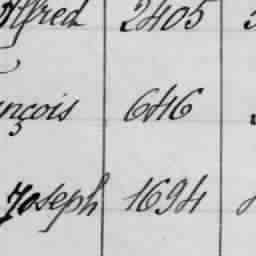 Alfred 2405
nçois 646
Joseph 1694